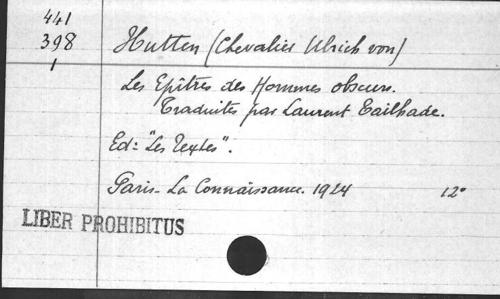 441
398
1
Hutten (Chevalier Ulrich von)
Les Epîtres des Hommes obscurs.
Traduites par Laurent Tailhade.
Ed: "Les Textes".
Paris - La Connaissance. 1924 12°
LIBER PROHIBITUS